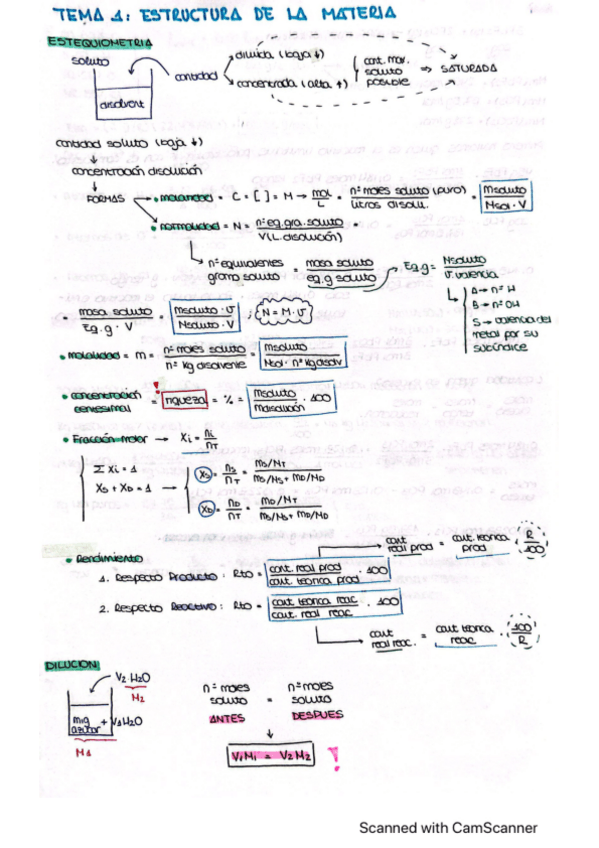 TEMA 1: ESTRUCTURA DE LA MATERIA
ESTEQUIOMETRIA
soluto
disolvent
cantidad
diluida (baja ↓)
concentrada (alta ↑)
cant. max. soluto posible ⇒ SATURADA
cantidad soluto (baja ↓)
concentración disolución
FORMAS
• molaridad = C = [ ] = M → mol/L = nº moles soluto (puro)/litros disolu. = msoluto/Nsol · V
• normalidad = N = nº eq. gra. soluto/V (L. disolución)
nº equivalentes gramo soluto = masa soluto/eq. g soluto
Eq. g = Nsoluto/v. valencia
A → nº H
B → nº OH
S → valencia del metal por su subíndice
• masa soluto/Eq. g · V = msoluto · v/Nsoluto · V ; N = M · v
• molalidad = m = nº moles soluto/nº kg disolvente = msoluto/Nsol · nº kg disolv
• concentración centesimal = riqueza = % = msoluto/mdisolución · 100
!
• Fracción molar → Xi = ni/nT
Σ Xi = 1
Xs + XD = 1 →
Xs = ns/nT = ms/NT / ms/Ns + mD/ND
XD = nD/nT = mD/NT / ms/Ns + mD/ND
• Rendimiento
1. Respecto Producto: Rto = cant. real prod/cant. teorica prod · 100
cant real prod = cant. teorica prod · R/100
2. Respecto Reactivo: Rto = cant. teorica reac/cant. real reac · 100
cant real reac. = cant teorica reac. · 100/R
DILUCION
V2 H2O
M2
mig azucar + V1H2O
M1
nº moles soluto ANTES = nº moles soluto DESPUES
V1M1 = V2M2 !
Scanned with CamScanner